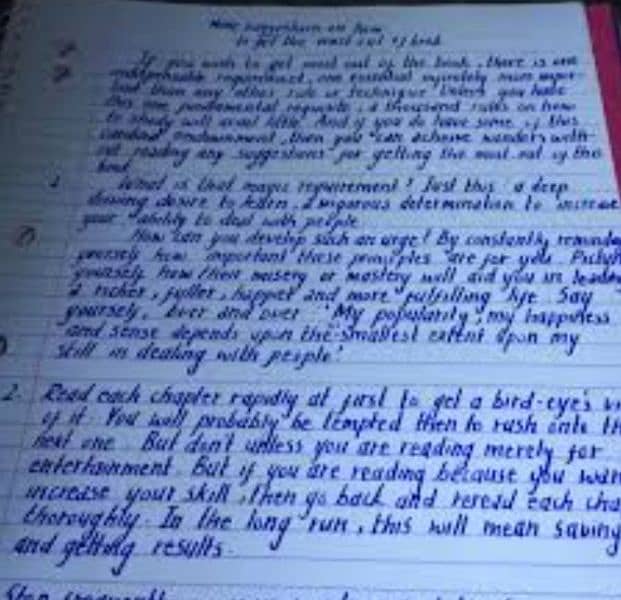 suggestions on how
to get the most out of book
If you wish to get most out of the book, there is one
indispensable requirement, one essential more impor-
tant than any other rule or technique Unless you have
this one fundamental requisite, a thousand rules on how
to study will avail little And if you do have some of this
endownment, then you can achieve wonders with-
out reading any suggestions for getting the most out of the
book
1. What is that magic requirement? Just this a deep
driving desire to learn, a vigorous determination to increase
your ability to deal with people
How can you develop such an urge? By constantly
yourself how important these principles are for you. Picture
yourself how their mastery will aid you in leading
a richer, fuller, happier and more fulfilling life Say
yourself, over and over "My popularity, my happiness
and sense depends upon the smallest extent upon my
skill in dealing with people."
2. Read each chapter rapidly at first to get a bird-eye's
of it. You will probably be tempted then to rush onto
next one. But don't unless you are reading merely for
entertainment. But if you are reading because you
increase your skill, then go back and reread each
thoroughly. In the long run, this will mean saving
and getting results.
Stop frequently